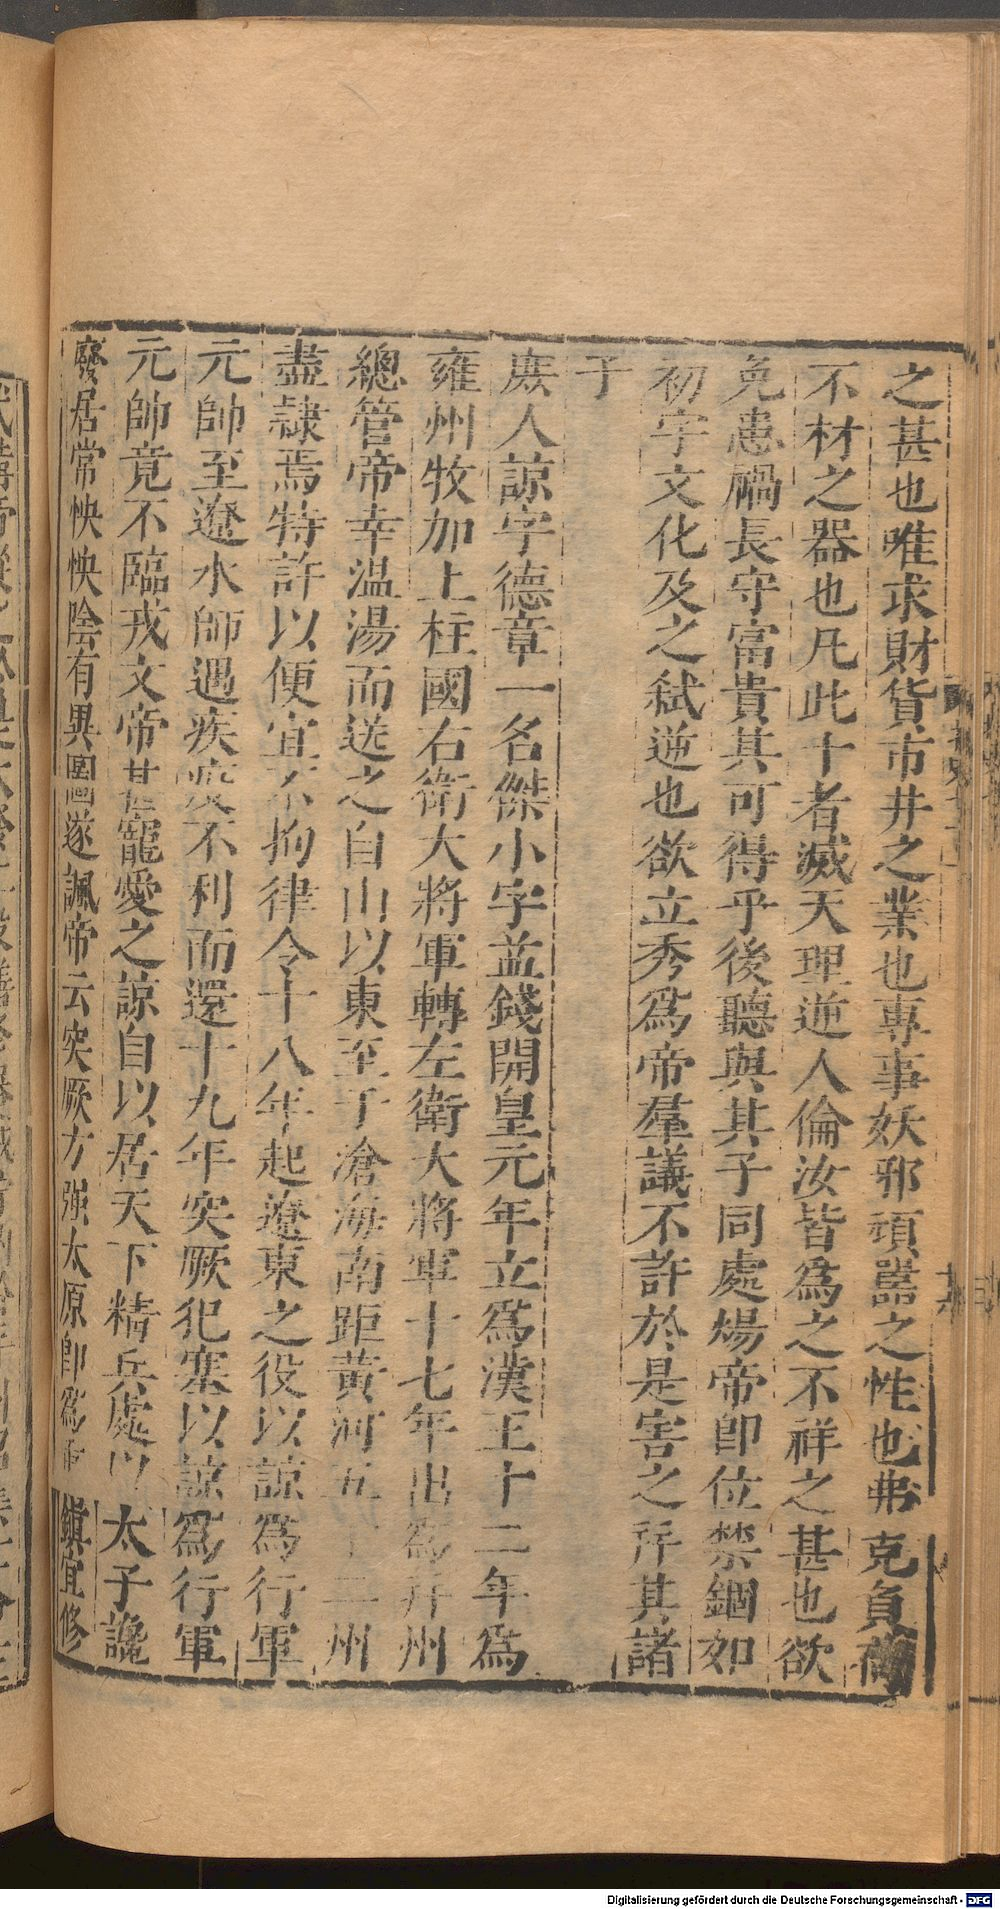 之甚也唯求財貨市井之業也專事妖邪頑嚚之性也弗克負荷
不材之器也凡此十者滅天理逆人倫汝皆爲之不祥之甚也欲
免患禍長守富貴其可得乎後聽與其子同處煬帝即位禁錮如
初宇文化及之弑逆也欲立秀爲帝羣議不許於是害之并其諸
子
庶人諒字德章一名傑小字益錢開皇元年立爲漢王十二年爲
雍州牧加上柱國右衛大將軍轉左衛大將軍十七年出爲并州
總管帝幸温湯而送之自山以東至于滄海南距黃河五十二州
盡隷焉特許以便宜不拘律令十八年起遼東之役以諒爲行軍
元帥至遼水師遇疾疫不利而還十九年突厥犯塞以諒爲行軍
元帥竟不臨戎文帝甚寵愛之諒自以居天下精兵處以太子讒
廢居常怏怏陰有異圖遂諷帝云突厥方强太原即爲重鎮宜修
Digitalisierung gefördert durch die Deutsche Forschungsgemeinschaft - DFG